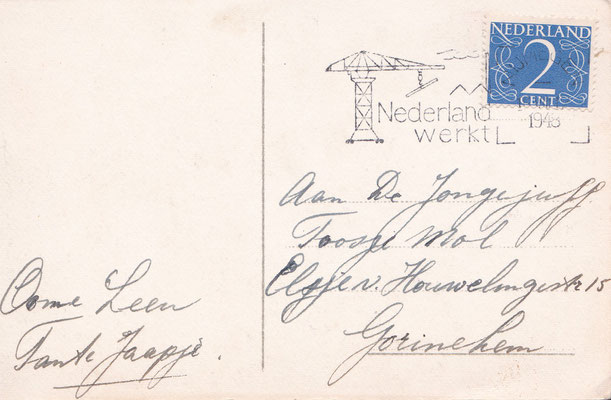 NEDERLAND
2
CENT
Nederland
werkt
1948
Aan De Jongejuff
Toosje Mol
Elsje v. Houwelingestr 15
Gorinchem
Oome Leen
Tante Jaapje.